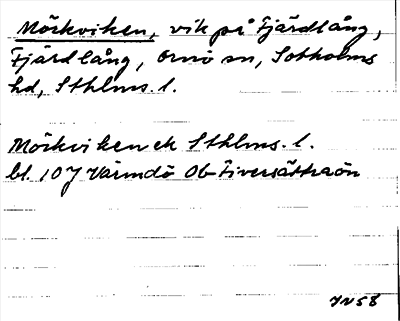 Mörkviken, vik på Fjärdlång,
Fjärdlång, Ornö sn, Sotholms
hd, Sthlms. l.
Mörkviken ek Sthlms. l.
bl. 107 Värmdö
JN 58